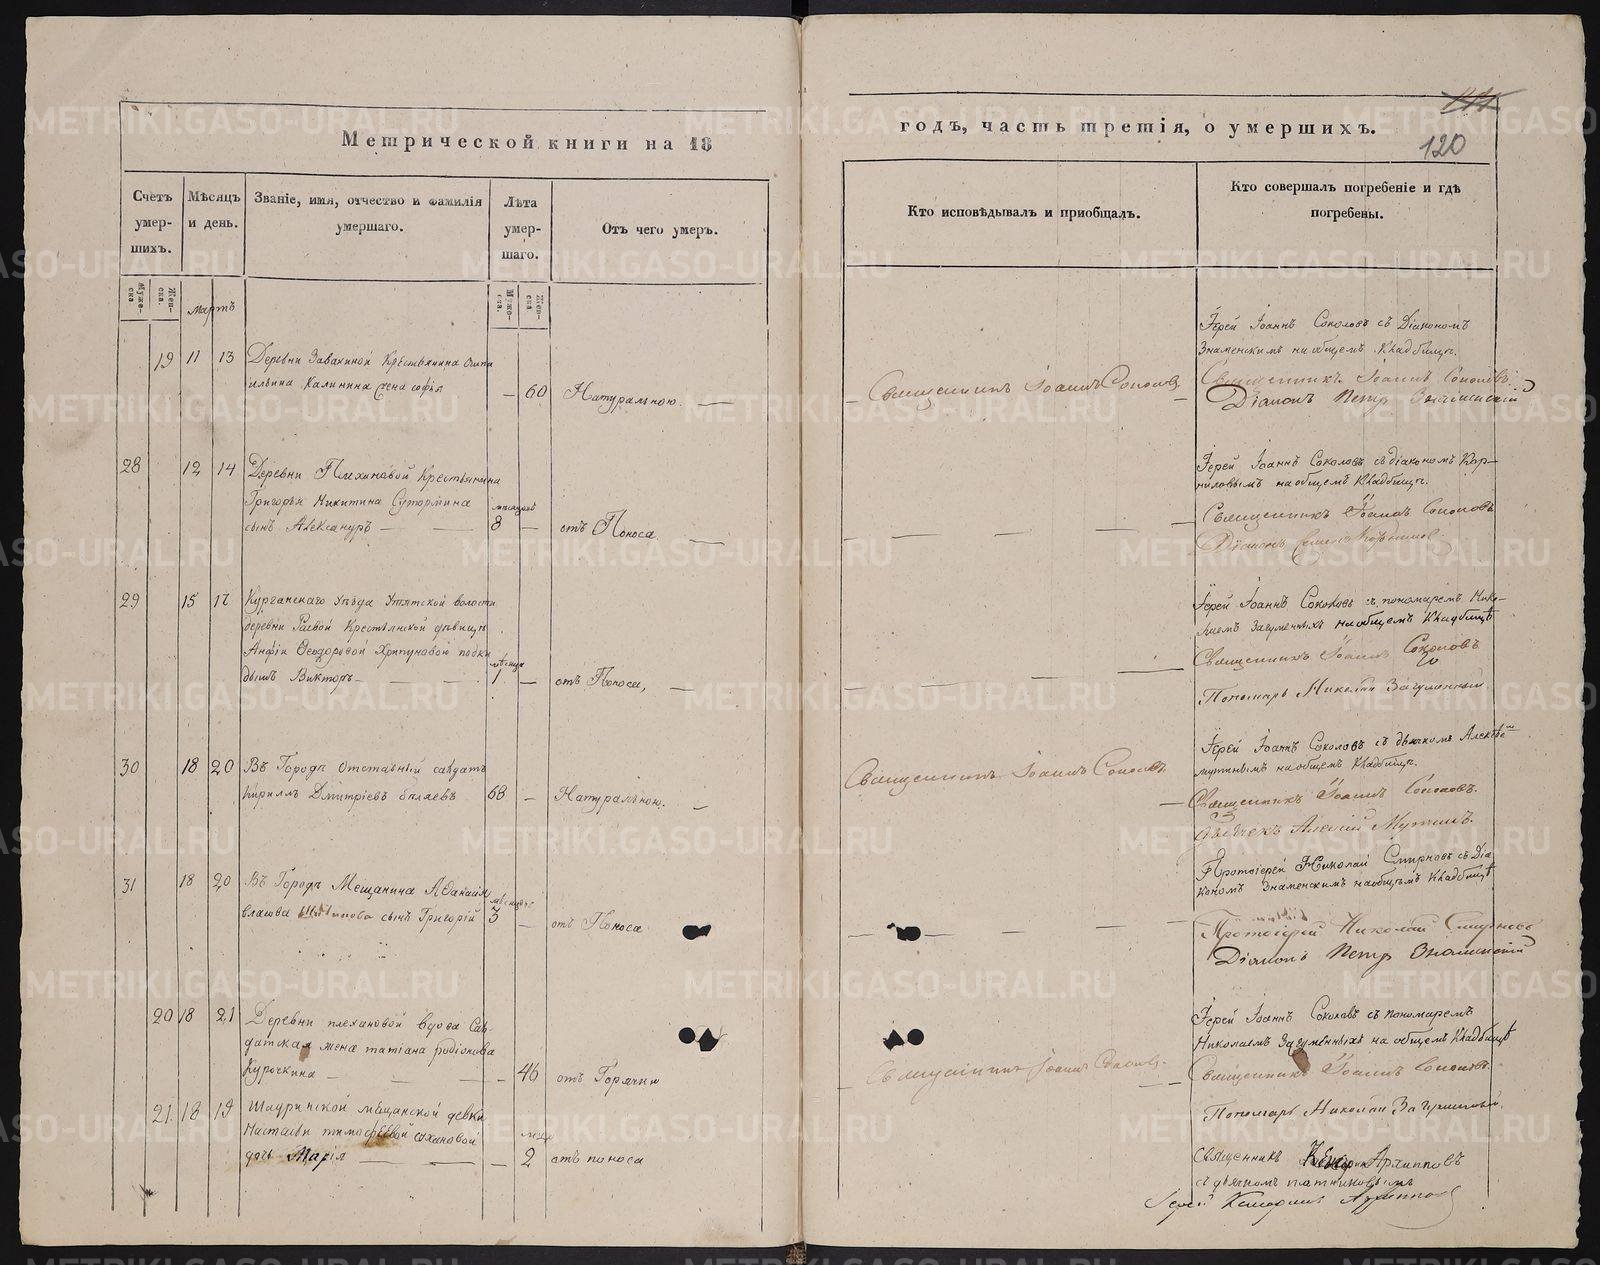 Метрической книги на 18
годъ, часть третія, о умершихъ.
120
Счетъ умер-шихъ.
Мѣсяцъ и день.
Званіе, имя, отчество и фамилія умершаго.
Лѣта умер-шаго.
Отъ чего умеръ.
Кто исповѣдывалъ и приобщалъ.
Кто совершалъ погребеніе и гдѣ погребены.
Муже-ска
Жен-ска.
Мартъ
Муже-ска.
Жен-ска
19 11 13 Деревни Крестьянина
Калинина жена софья
60 Натуральною.
Священникъ Іоаннъ Соколовъ
Іерей Іоаннъ Соколовъ съ Діакономъ
Знаменскимъ на общемъ Кладбищѣ.
Священникъ Іоаннъ Соколовъ
Діаконъ Петр Знаменскій
28 12 14 Деревни Плехановой Крестьянина
Григорья Никитина Сутормина
сынъ Александръ
мѣсяцовъ
8 отъ Поноса
Іерей Іоаннъ Соколовъ съ діакономъ Кор-
ниловымъ на общемъ Кладбищѣ.
Священникъ Іоаннъ Соколовъ
Діаконъ
29 15 17 Курганскаго Уѣзда Утятской волости
деревни Крестьянской дѣвицы
Анфіи Ѳеодоровой подки
дышъ Викторъ
мѣсяца
1 отъ Поноса,
Іерей Іоаннъ Соколовъ съ пономаремъ Нико-
лаемъ на общемъ Кладбищѣ
Священникъ Іоаннъ Соколовъ
Пономарь Николай
30 18 20 Въ Городѣ Отставный салдатъ
Кириллъ Дмитріевъ бѣляевъ
68 Натуральною.
Священникъ Іоаннъ Соколовъ
Іерей Іоаннъ Соколовъ съ дьячкомъ Алексѣем
мутинымъ на общемъ Кладбищѣ.
Священникъ Іоаннъ Соколовъ.
Дьячекъ Алексій Мутинъ.
31 18 20 Въ Городѣ Мещанина
власова сынъ Григорій
мѣсяцовъ
3 отъ Поноса
Протоіерей Николай Смирновъ съ Діа
кономъ Знаменскимъ на общемъ Кладбищѣ
Протоіерей Николай Смирновъ
Діаконъ Петр Знаменскій
20 18 21 Деревни плехановой вдова Сал-
датская жена татіана родіонова
Курочкина
46 отъ Горячки
Священникъ Іоаннъ Соколовъ.
Іерей Іоаннъ Соколовъ съ пономаремъ
Николаемъ на общемъ Кладбищѣ
Священникъ Іоаннъ Соколовъ.
Пономарь Николай
21 18 19 Шадринской мѣщанской девки
Настасьи тимофѣевой
дочь Марія
2 отъ поноса
Священникъ Архипповъ
съ дьячкомъ плотниковымъ
Іерей Архипповъ
METRIKI.GASO-URAL.RU